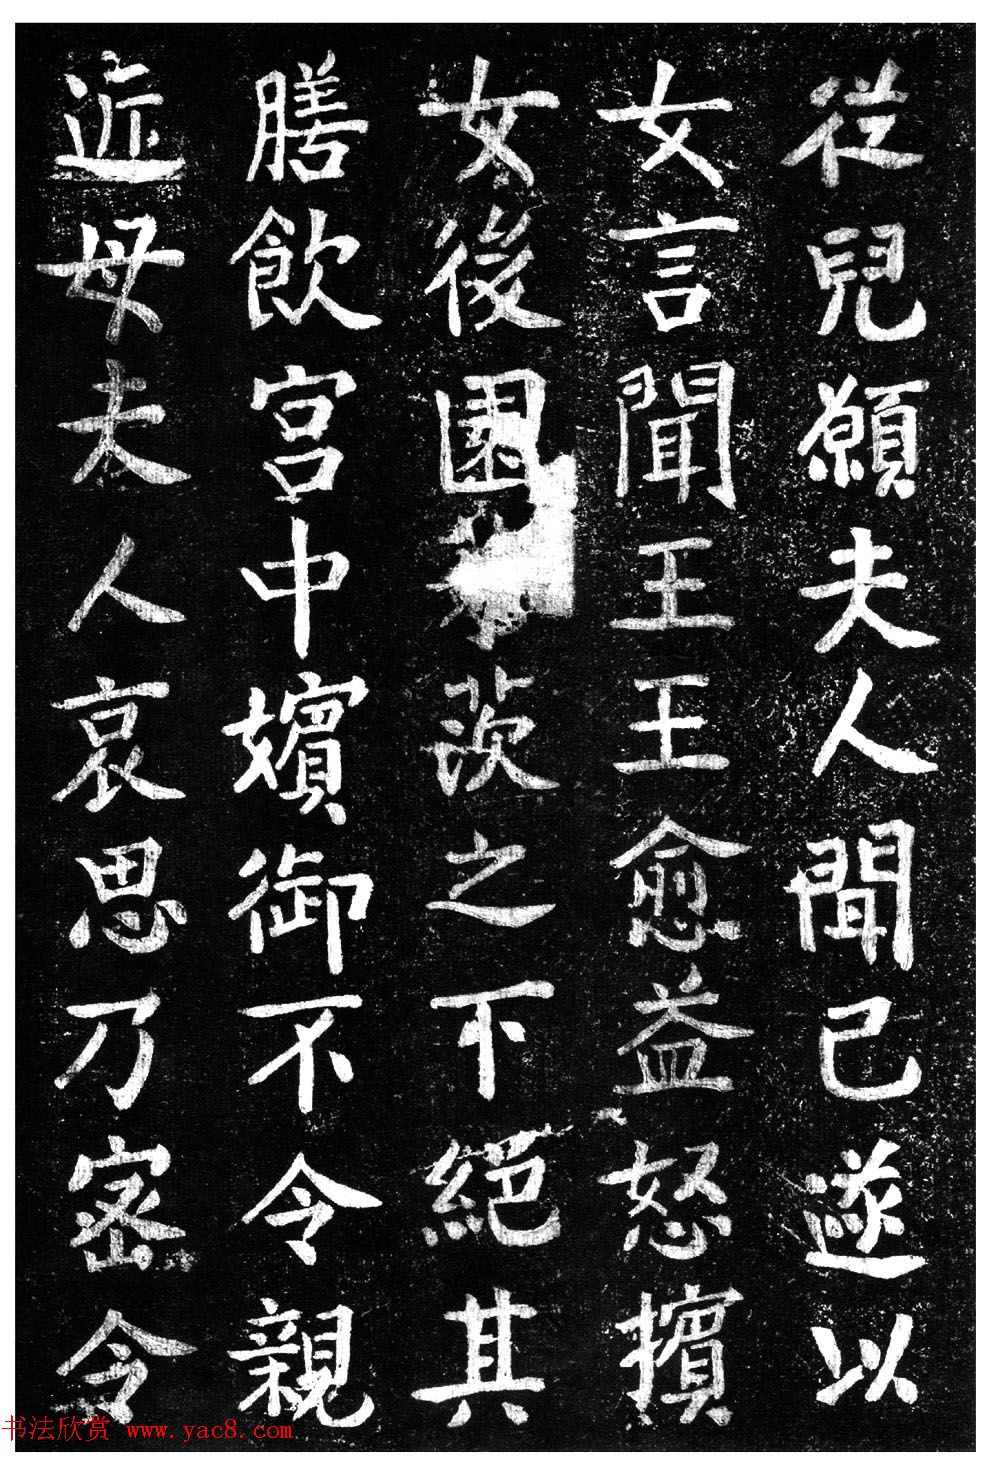 從兒願夫人聞已遂以
女言聞王王愈益怒擯
女後園茨之下絕其
膳飲宮中嬪御不令親
近母夫人哀思乃密令
书法欣赏 www.yac8.com